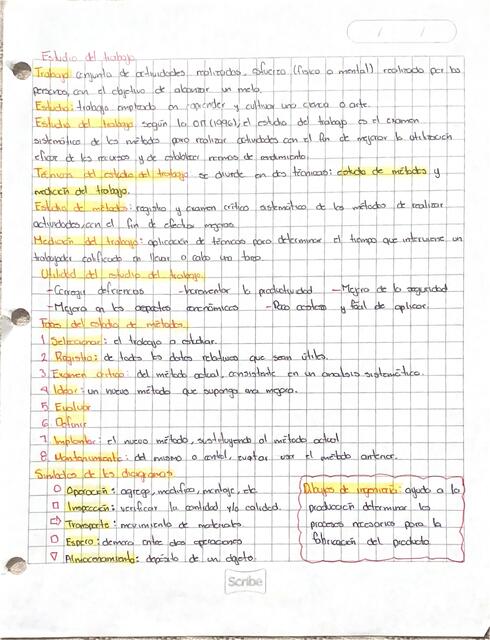 Estudio del trabajo
Trabajo: conjunto de actividades realizadas, esfuerzo (físico o mental) realizado por las
personas, con el objetivo de alcanzar un meta.
Estudio: trabajo empleado en aprender y cultivar una ciencia o arte.
Estudio del trabajo: según la OIT (1996), el estudio del trabajo es el examen
sistemático de los métodos para realizar actividades con el fin de mejorar la utilización
eficaz de los recursos y de establecer normas de rendimiento.
Técnicas del estudio del trabajo: se divide en dos técnicas: estudio de métodos y
medición del trabajo.
Estudio de métodos: registro y examen crítico sistemático de los métodos de realizar
actividades, con el fin de efectuar mejoras.
Medición del trabajo: aplicación de técnicas para determinar el tiempo que interviene un
trabajador calificado en llevar a cabo una tarea.
Utilidad del estudio del trabajo.
-Corregir deficiencias -Incrementar la productividad -Mejora de la seguridad
-Mejora en los aspectos económicos -Poco costoso y fácil de aplicar.
del estudio de métodos.
1. Seleccionar: el trabajo a estudiar.
2. Registro: de todos los datos relativos que sean útiles.
3. Examen crítico: del método actual, consistente en un analisis sistemático.
4. Idear: un nuevo método que suponga una mejora.
5. Evaluar
6. Definir
7. Implantar: el nuevo método, sustituyendo al método actual
8. Mantenimiento: del mismo o control, evitar usar el método anterior.
Simbolos de los diagramas
Operación: agrega, modifica, montaje, etc
Inspección: verificar la cantidad y/o calidad.
Transporte: movimiento de materiales
Espera: demora entre dos operaciones
Almacenamiento: depósito de un objeto.
Dibujos de ingeniería: ayuda a la
producción determinar los
procesos necesarios para la
fabricación del producto
Scribe